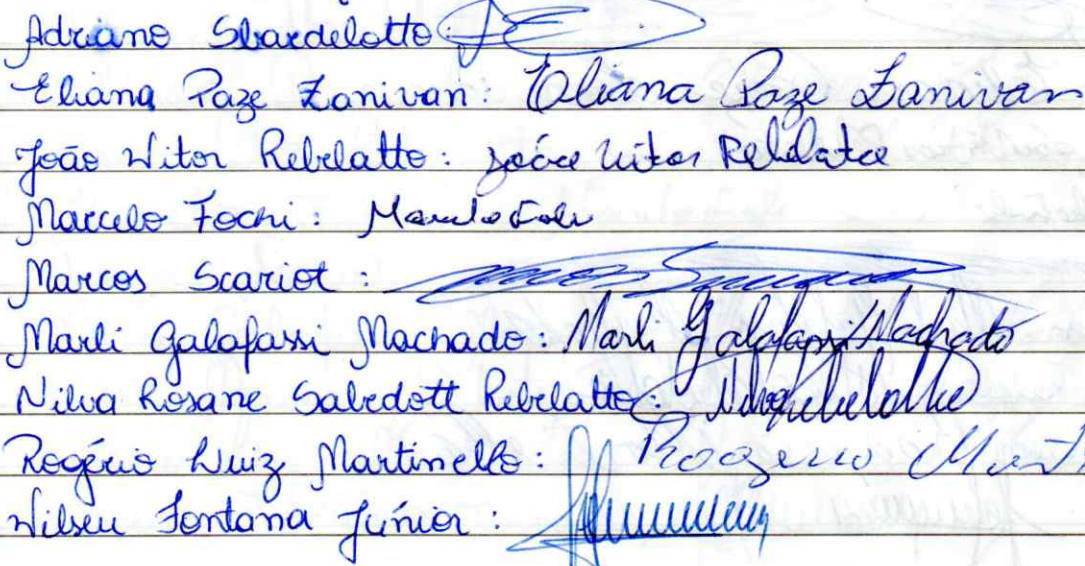 Adriano Sbardelotto:
Eliana Paze Zanivan: Eliana Paze Zanivan
João Vitor Rebelatto: João Vitor Rebelatto
Marcelo Fochi: Marcelo Fochi
Marcos Scariot:
Marli Galafassi Machado: Marli Galafassi Machado
Nilva Rosane Sabedott Rebelatto: Nilva Rebelatto
Rogério Luiz Martinello: Rogerio
Vilseu Fontana Júnior: